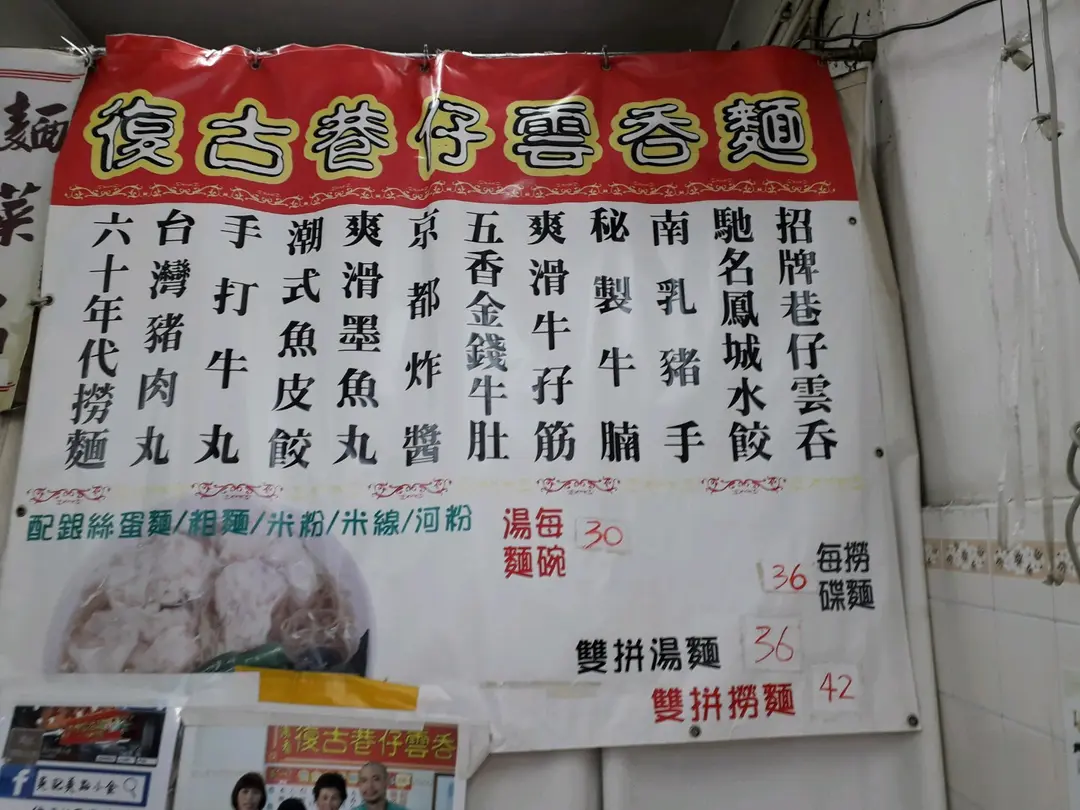 復古巷仔雲吞麵
招牌巷仔雲吞
馳名鳳城水餃
南乳豬手
秘製牛腩
爽滑牛孖筋
五香金錢牛肚
京都炸醬
爽滑墨魚丸
潮式魚皮餃
手打牛丸
台灣豬肉丸
六十年代撈麵
配銀絲蛋麵/粗麵/米粉/米線/河粉
每碗湯麵 30
撈麵每碟 36
雙拼湯麵 36
雙拼撈麵 42
麵
菜
復古巷仔雲吞
f